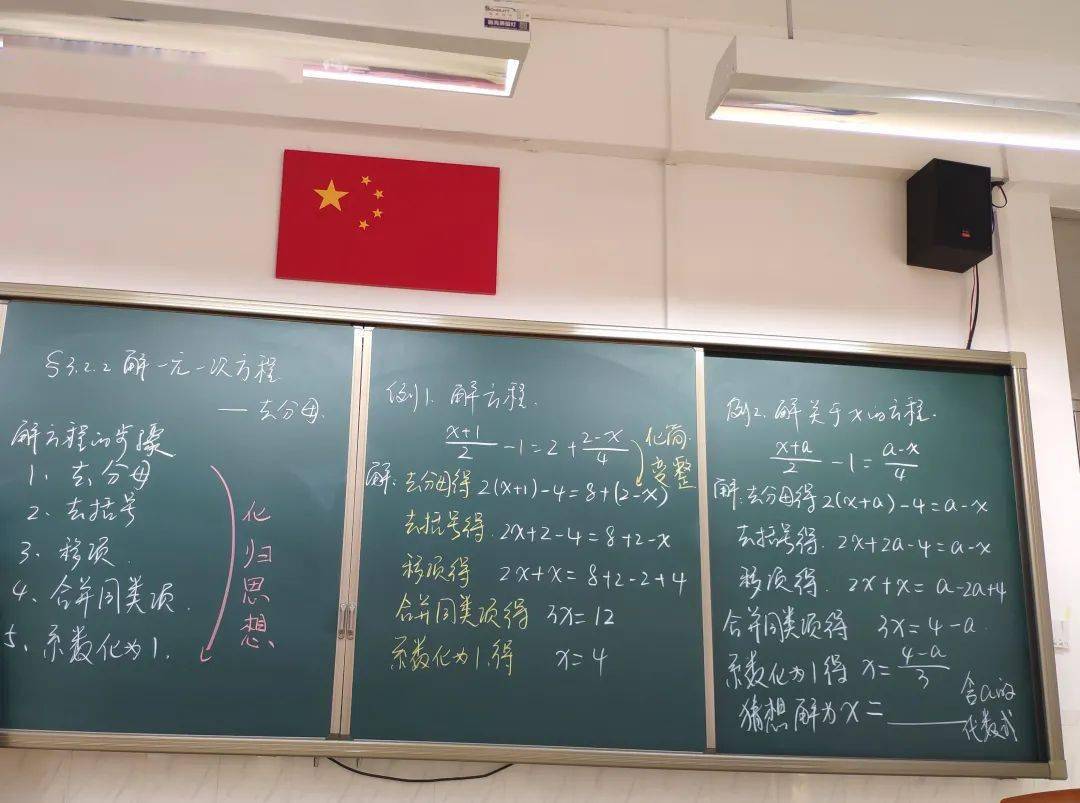 §3.2.2 解一元一次方程
— 去分母.
解方程的步骤
1、去分母
2、去括号
3、移项.
4、合并同类项.
5、系数化为1.
化归思想
例1. 解方程.
(x+1)/2 -1=2+(2-x)/4
化简.
变整
解: 去分母得 2(x+1)-4=8+(2-x)
去括号得. 2x+2-4=8+2-x
移项得 2x+x=8+2-2+4
合并同类项得 3x=12
系数化为1得 x=4
例2. 解关于x的方程.
(x+a)/2 -1=(a-x)/4
解: 去分母得 2(x+a)-4=a-x
去括号得. 2x+2a-4=a-x
移项得. 2x+x=a-2a+4
合并同类项得 3x=4-a.
系数化为1得 x=(4-a)/3
猜想解为x=______ 含a的
代数式